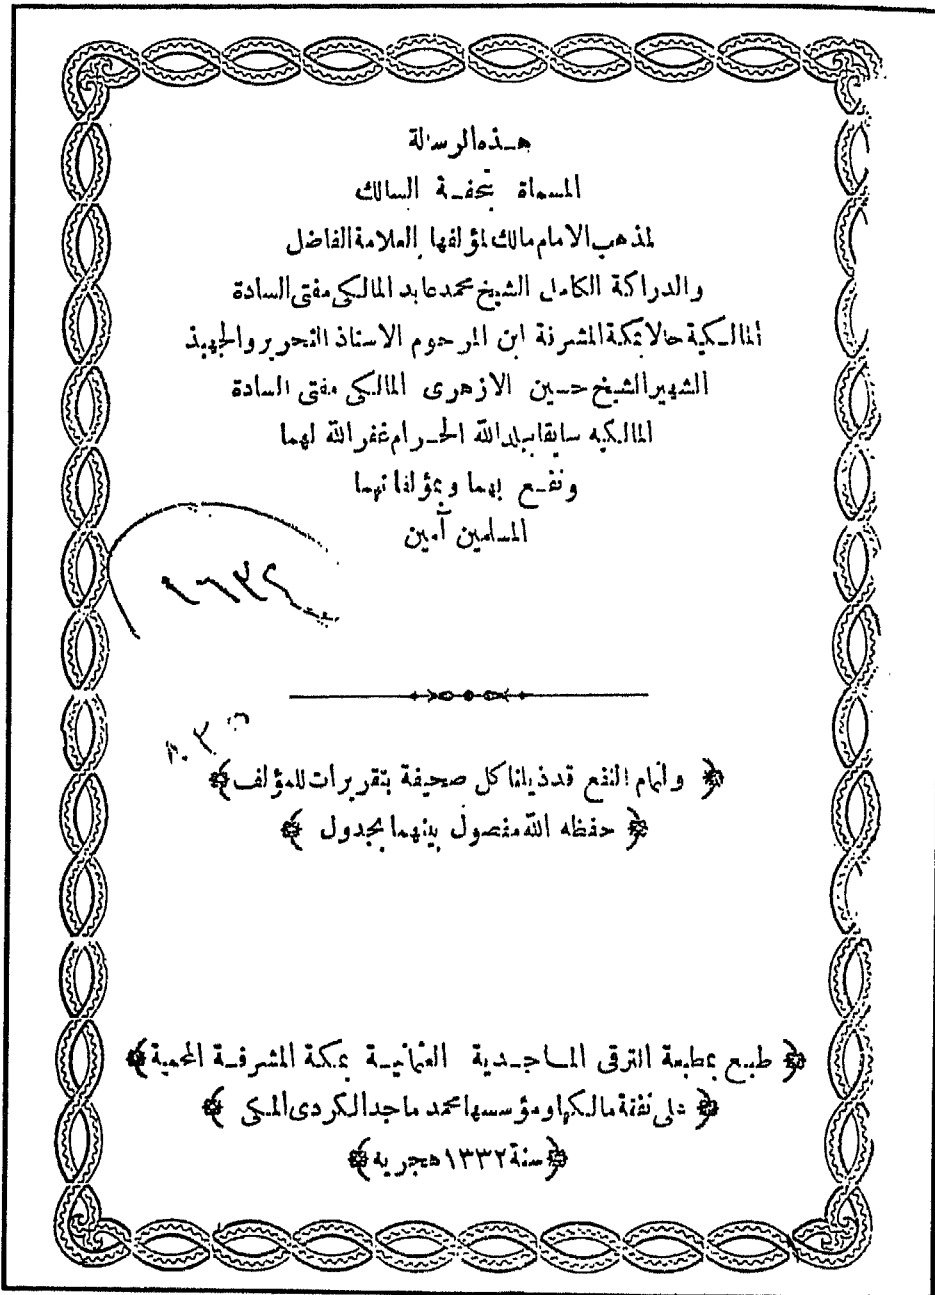 هذه الرسالة
المسماة بتحفة السالك
لمذهب الامام مالك لمؤلفها العلامة الفاضل
والدراكة الكامل الشيخ محمد عابد المالكى مفتى السادة
المالكية حالا بمكة المشرفة ابن المرحوم الاستاذ النحرير والجهبذ
الشهير الشيخ حسين الازهرى المالكى مفتى السادة
المالكيه سابقا ببلد الله الحرام غفر الله لهما
ونفع بهما وبمؤلفاتهما
المسلمين آمين
١٦٣٢
﴿ واتمام النفع قد ذيلنا كل صحيفة بتقريرات للمؤلف ﴾
﴿ حفظه الله مفصول بينهما بجدول ﴾
﴿ طبع بمطبعة الترقى الماجدية العثمانية بمكة المشرفة المحمية ﴾
﴿ على نفقة مالكها ومؤسسها محمد ماجد الكردى المكى ﴾
﴿ سنة ١٣٣٢ هجريه ﴾